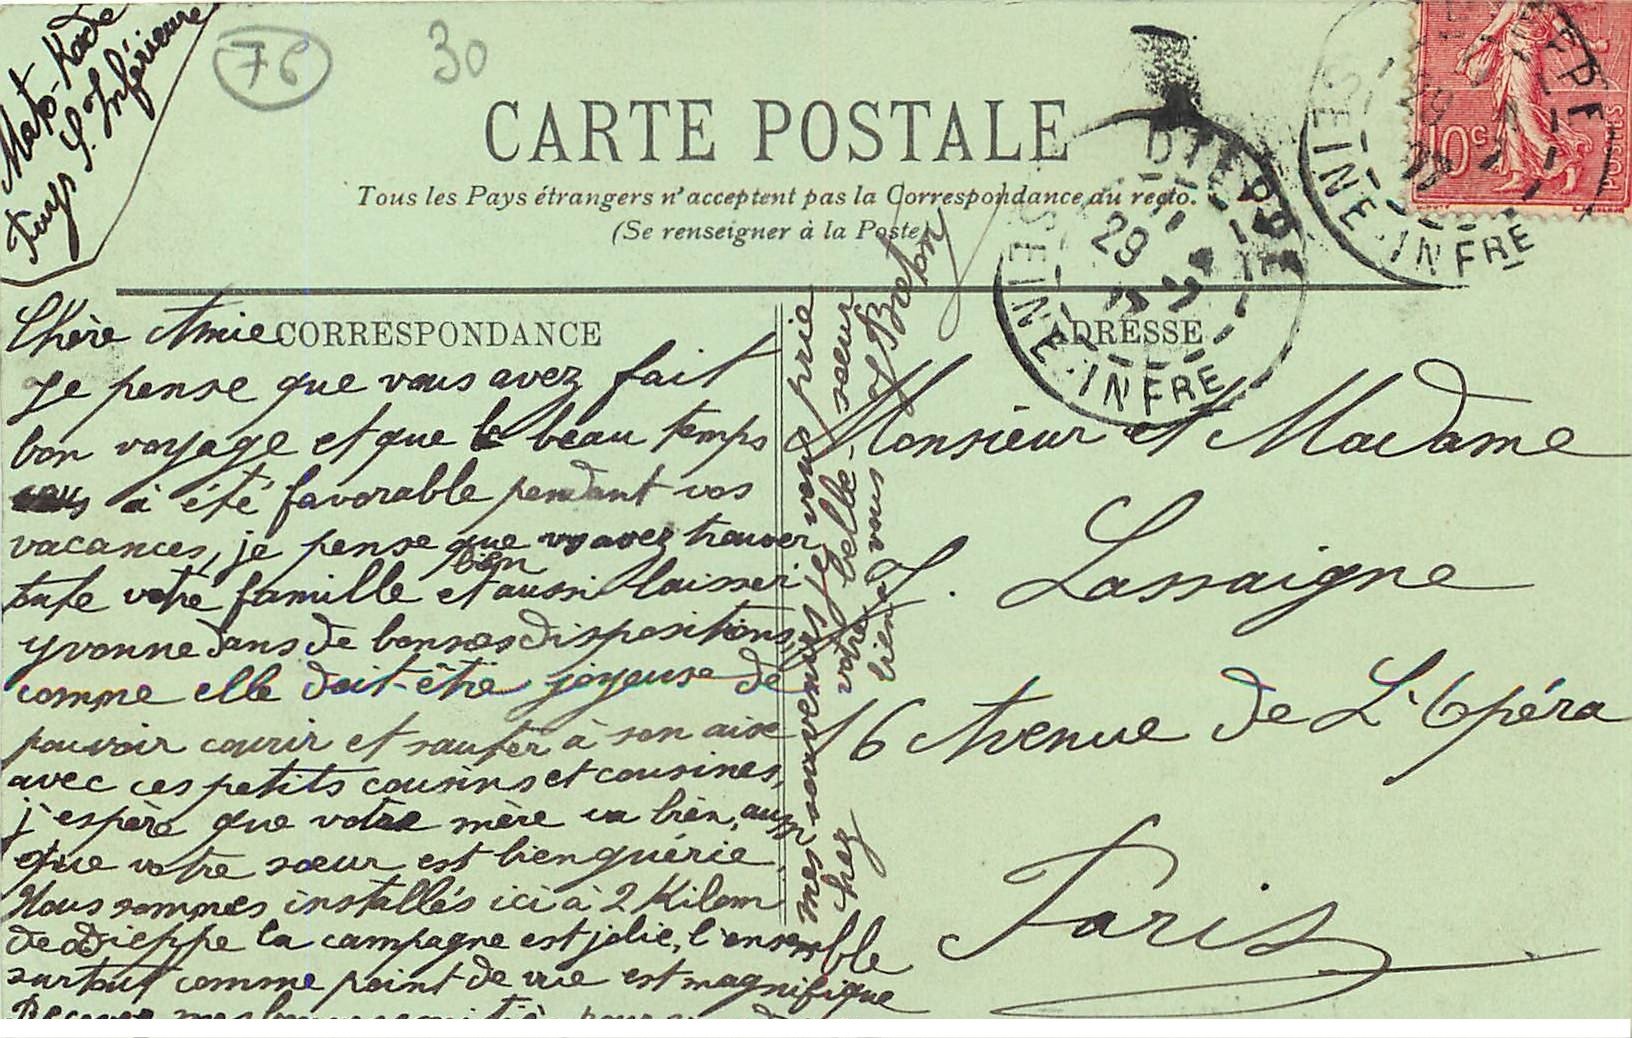 Puys S. Inférieure
76
30
CARTE POSTALE
Tous les Pays étrangers n'acceptent pas la Correspondance au recto.
(Se renseigner à la Poste)
CORRESPONDANCE
ADRESSE
10c
POSTES
DIEPPE
SEINE-INFRE
29
DIEPPE
SEINE-INFRE
29
Chère Amie
Je pense que vous avez fait
bon voyage et que le beau temps
vous à été favorable pendant vos
vacances, je pense que vs avez trouver
tute votre famille bien et aussi laisser
yvonne dans de bonnes dispositions,
comme elle doit-être joyeuse de
pouvoir courir et sauter à son aise
avec ces petits cousins et cousines,
j'espère que votre mère va bien, aussi
que votre sœur est bien guérie,
Nous sommes installés ici à 2 Kilom
de Dieppe la campagne est jolie, l'ensemble
surtout comme point de vue est magnifique
Recevez mes
mes souvenirs je vous prie
chez votre belle-sœur
bien à vous J Breton
Monsieur et Madame
J. Lassaigne
16 Avenue de L'Opéra
Paris